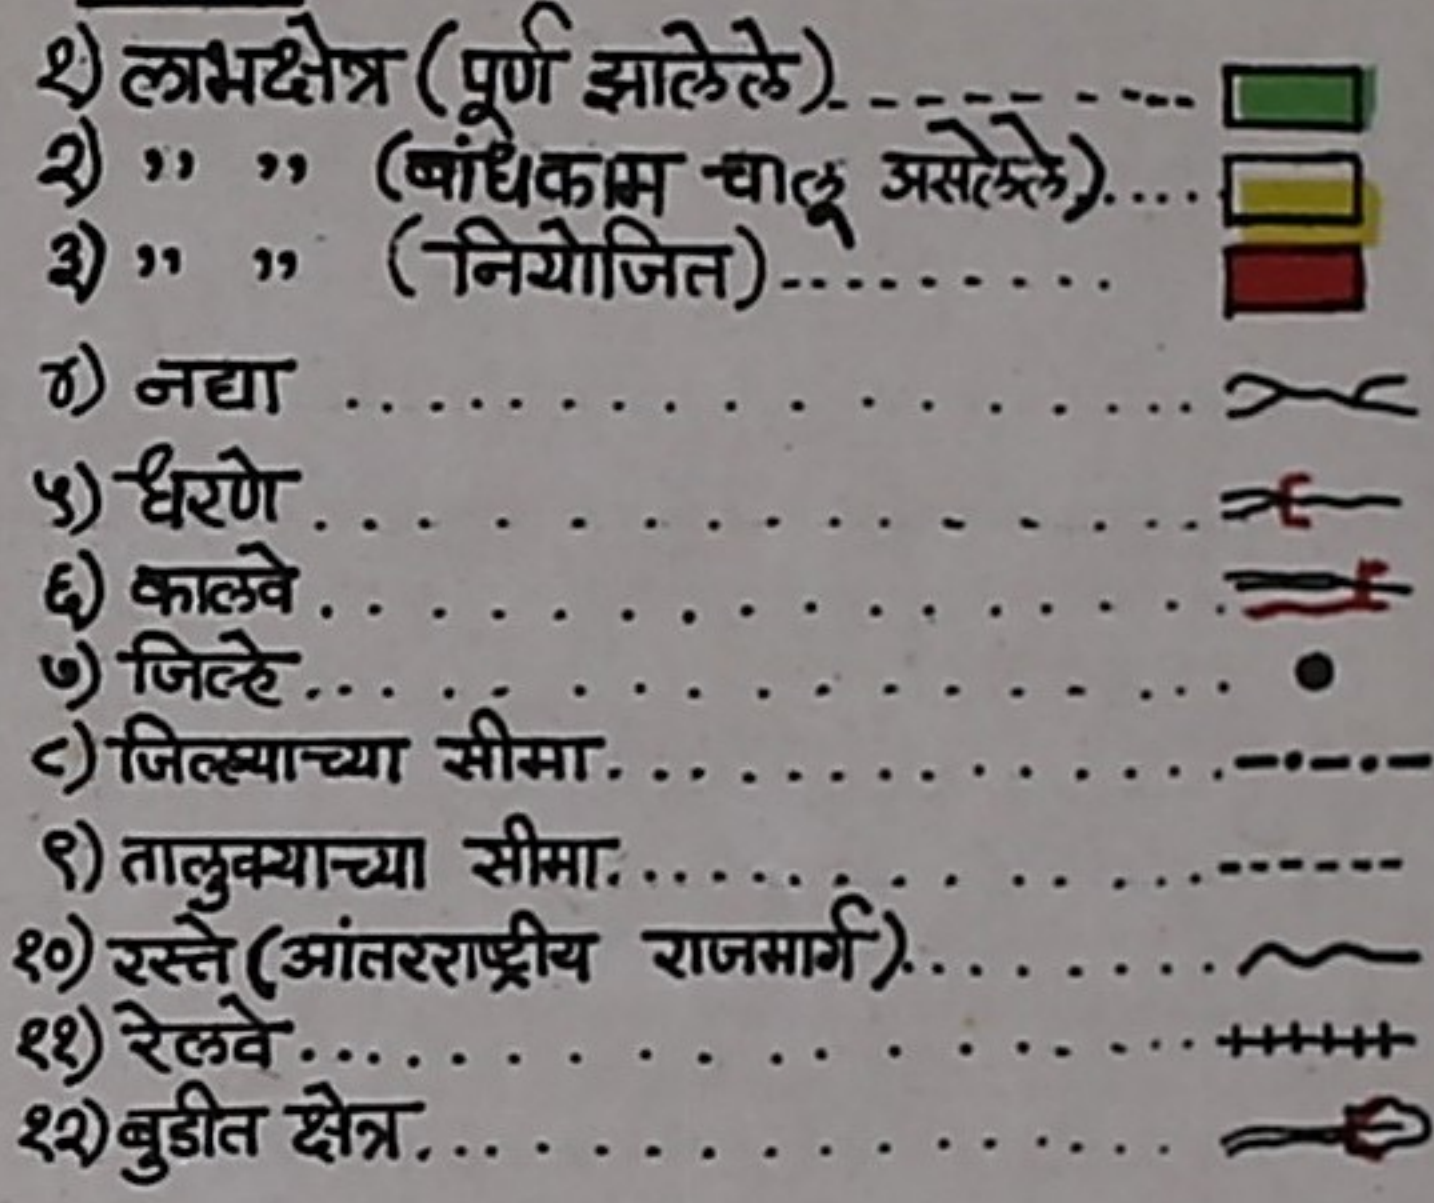 १) लाभक्षेत्र (पूर्ण झालेले)
२) ,, ,, (बांधकाम चालू असलेले)
३) ,, ,, (नियोजित)
४) नद्या
५) धरणे
६) कालवे
७) जिल्हे
८) जिल्ह्याच्या सीमा
९) तालुक्याच्या सीमा
१०) रस्ते (आंतरराष्ट्रीय राजमार्ग)
११) रेलवे
१२) बुडीत क्षेत्र